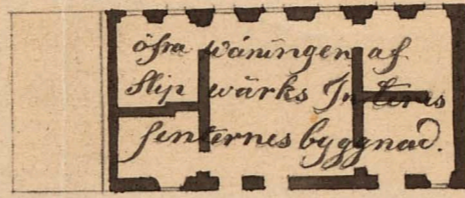 öfra wåningen af
Slip wärks Interes
senternes byggnad.